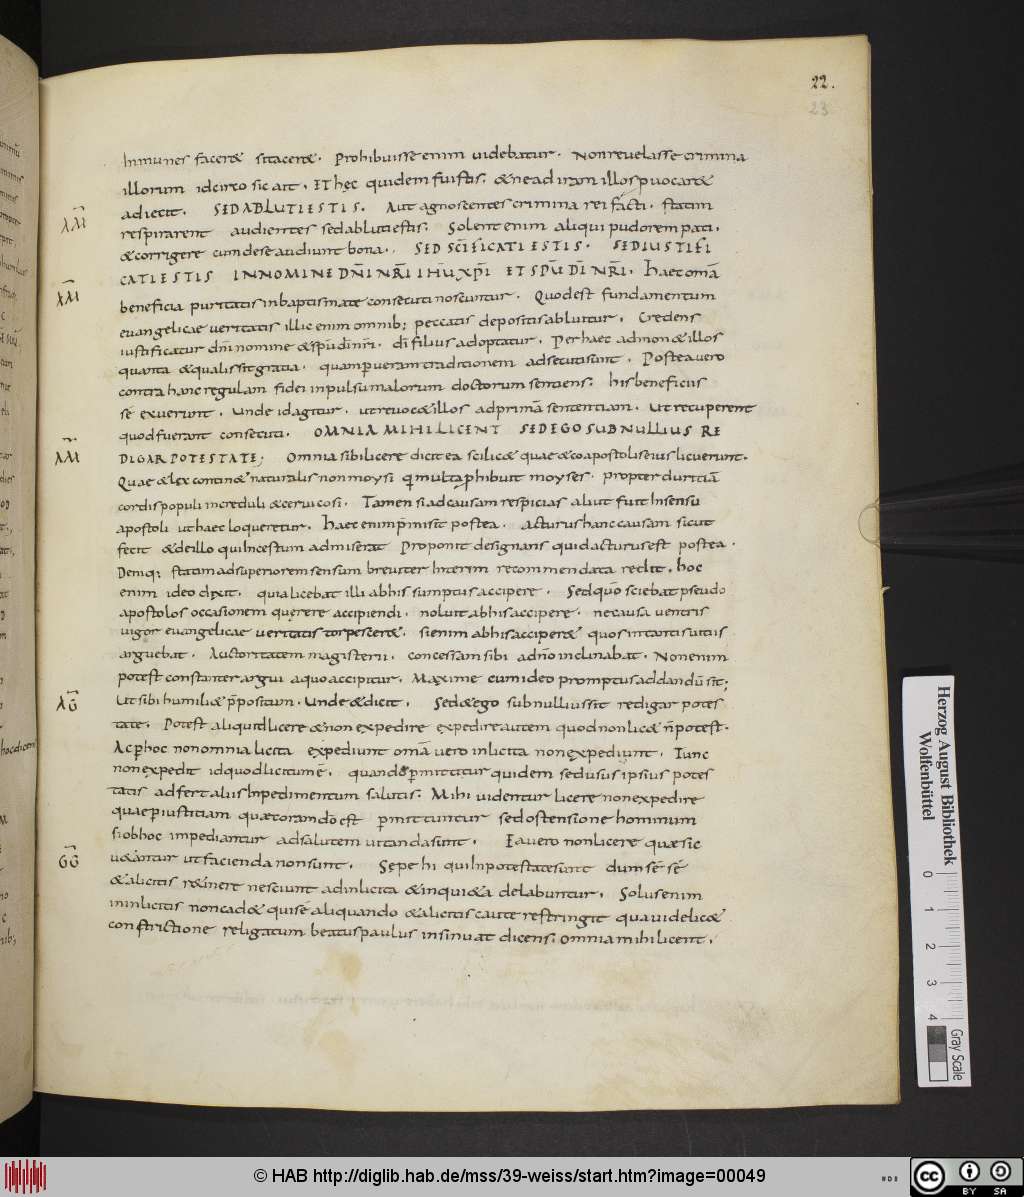 22.
23
Inmunes facere& sitacere&. Prohibuisse enim uidebatur. Nonreuelasse crimina
illorum idcirco sic ait. Et hęc quidem fuistis. &ne ad iram illos puocar&
adiecit. SED ABLUTI ESTIS. Aut agnoscentes crimina rei facti. statim
ĀM̄
respirarent audientes sed abluti estis. Solent enim aliqui pudorem pati.
&corrigere cum de se audiunt bona. SED SC̄IFICATI ESTIS. SED IUSTIFI
CATI ESTIS IN NOMINE DN̄I NR̄I IHŪ XP̄I ET SPŪ DĪ NR̄I. Haec omā
ĀM̄
beneficia puritatis in baptismate consecuti noscuntur. Quod est fundamentum
euangelicae ueritatis illic enim omnib; peccatis depositis abluitur. Credens
iustificatur dn̄i nomine &spū dī nr̄i. dī filius adoptatur. Per haec admon& illos
quanta &qualis sit gratia. quam p ueram traditionem adsecuti sunt. Postea uero
contra hanc regulam fidei inpulsu malorum doctorum sentiens. his beneficiis
sē exuerunt. unde id agitur. ut reuoc& illos ad primā sententiam. Ut recuperent
quod fuerant consecuti. OMNIA MIHI LICENT SED EGO SUB NULLIUS RE
ĀM̄
DIGAR POTESTATE; Omnia sibi licere dicit ea scilic& quae &coapostolis eius licuerunt.
Quae &lex contin& naturalis non moysi q multa phibuit moyses. propter duritiā
cordis populi increduli &ceruicosi. Tamen si ad causam respicias aliut fuit In sensu
apostoli ut haec loqueretur. Haec enim pmisit postea. acturus hanc causam sicut
fecit &de illo qui Incestum admiserat Proponit designans quid acturus est postea.
Deniq; statim ad superiorem sensum breuiter Interim recommendata redit. hoc
enim ideo dixit. quia licebat illi ab his sumptus accipere. Sed quō sciebat pseudo
apostolos occasionem quęrere accipiendi. noluit ab his accipere. ne causa uentris
uigor euangelicae ueritatis torpescer&. si enim ab his acciper& quos in tantis uitiis
arguebat. Auctoritatem magisterii. concessam sibi adn̄o inclinabat. Non enim
potest constanter argui a quo accipitur. Maxime cum ideo promptus ad dandū sit;
ĀŪ
Ut sibi humili& p̄positum. Unde &dicit. Sed &ego sub nullius sit redigar potes
tate. Potest aliquid licere &non expedire expedire autem quod non lic& n̄ potest.
Ac p hoc non omnia licita expediunt omā uero inlicita non expediunt. Tunc
non expedit id quod licitum ē. quando pmittitur quidem sed usus ipsius potes
tatis adfert aliis Inpedimentum salutis. Mihi uidentur licere non expedire
quae p iustitiam quae corām dō est pmittuntur sed ostensione hominum
si ob hoc impediantur ad salutem uitanda sunt. Ea uero non licere quae sic
ḠŪ
u&antur ut facienda non sunt. Sępe hi qui In potestate sunt dum sē sē
&a licitis r&inere nesciunt ad inlicita &inqui&a delabuntur. Solus enim
in inlicitis non cad& qui sē aliquando &a licitis caute restringit qua uidelic&
constrictione religatum beatus paulus insinuat dicens. omnia mihi licent.
Herzog August Bibliothek
Wolfenbüttel
0 1 2 3 4
Gray Scale
© HAB http://diglib.hab.de/mss/39-weiss/start.htm?image=00049
cc BY SA